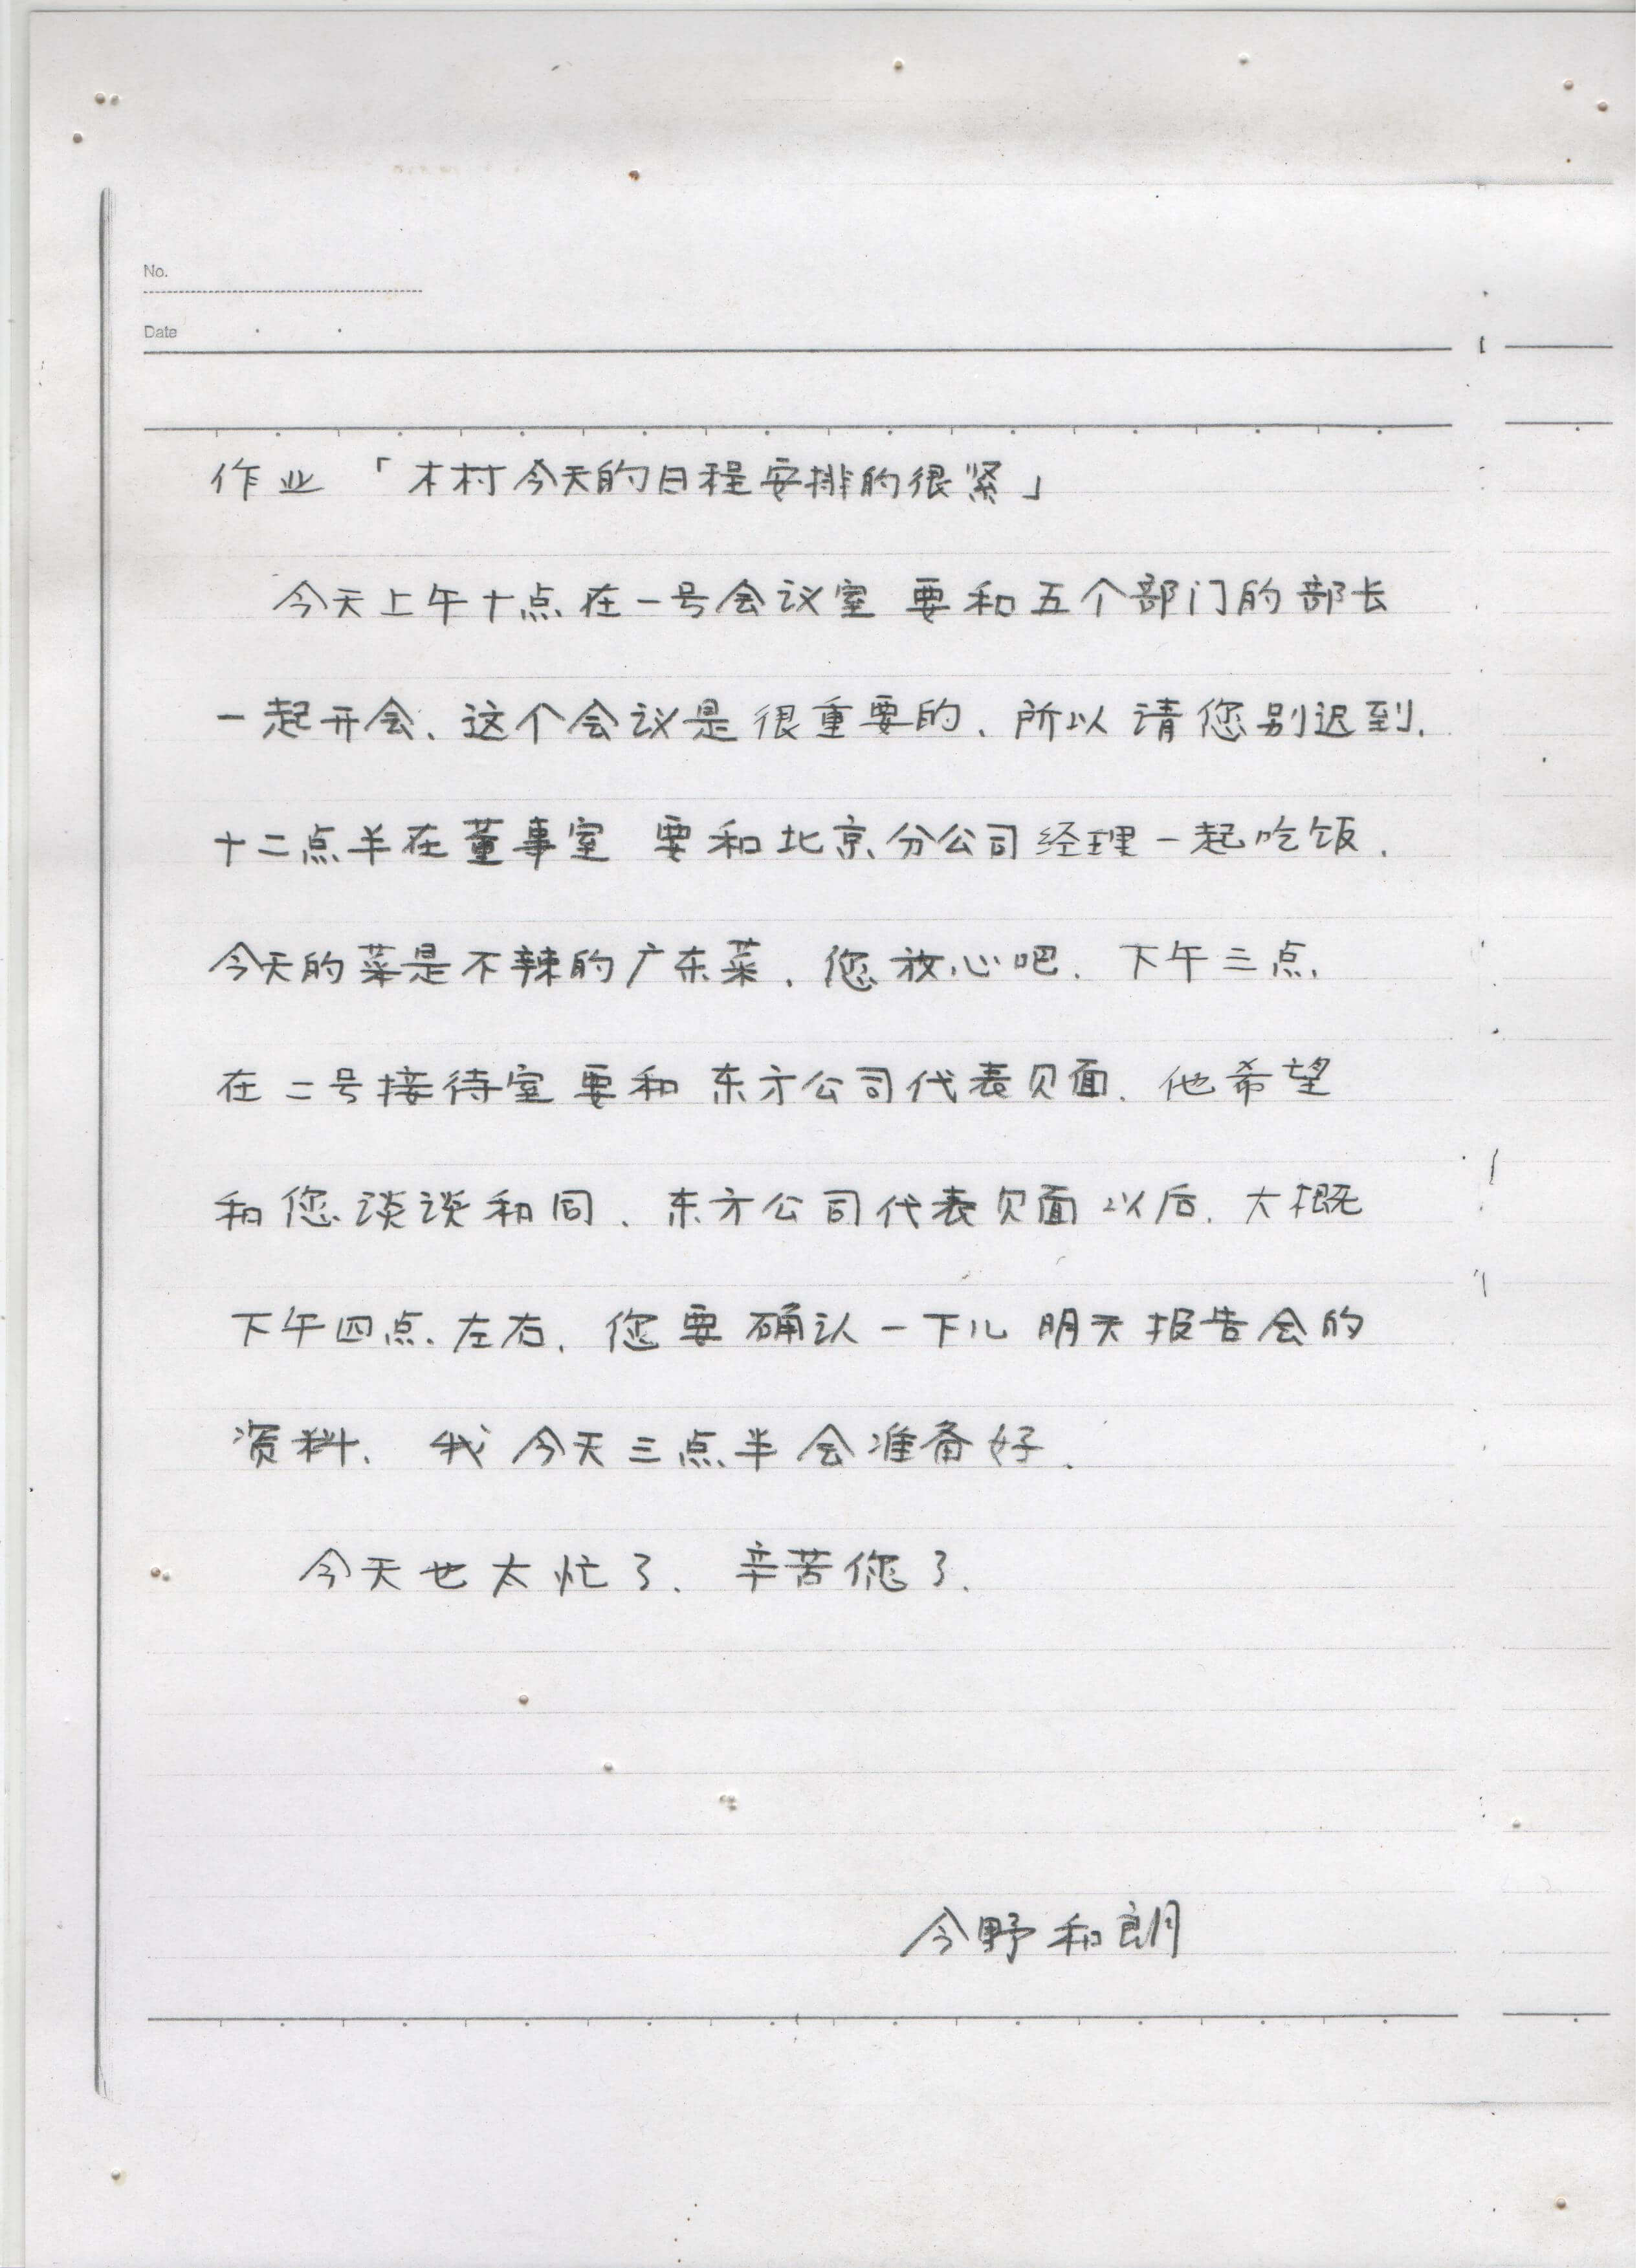 No.
Date
作业 「木村今天的日程安排的很紧」
今天上午十点在一号会议室 要和五个部门的部长
一起开会、这个会议是很重要的、所以请您别迟到.
十二点半在董事室 要和北京分公司经理一起吃饭.
今天的菜是不辣的广东菜. 您放心吧. 下午三点
在二号接待室要和东方公司代表见面. 他希望
和您谈谈和同. 东方公司代表见面以后. 大概
下午四点左右. 您要确认一下儿明天报告会的
资料. 我今天三点半会准备好.
今天也太忙了. 辛苦您了.
今野和朗